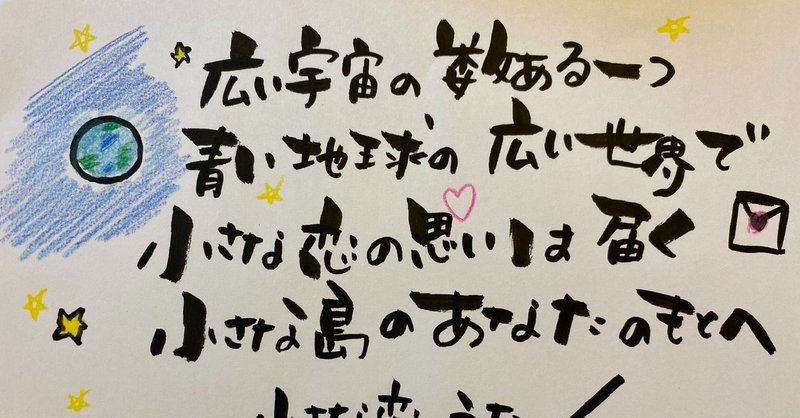 広い宇宙の数ある一つ
青い地球の広い世界で
小さな恋の思いは届く
小さな島のあなたのもとへ